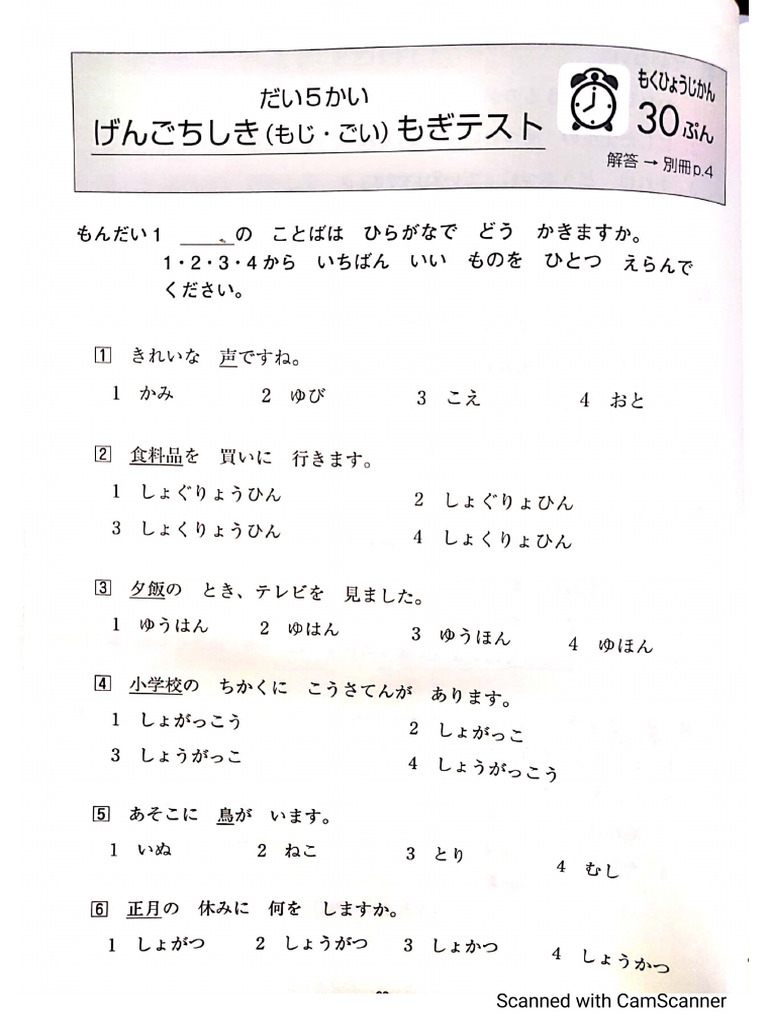 だい5かい
げんごちしき(もじ・ごい)もぎテスト
もくひょうじかん
30ぷん
解答→別冊p.4
もんだい1 ＿＿＿の ことばは ひらがなで どう かきますか。
1・2・3・4から いちばん いい ものを ひとつ えらんで
ください。
1 きれいな 声ですね。
1 かみ 2 ゆび 3 こえ 4 おと
2 食料品を 買いに 行きます。
1 しょぐりょうひん 2 しょぐりょひん
3 しょくりょうひん 4 しょくりょひん
3 夕飯の とき、テレビを 見ました。
1 ゆうはん 2 ゆはん 3 ゆうほん 4 ゆほん
4 小学校の ちかくに こうさてんが あります。
1 しょがっこう 2 しょがっこ
3 しょうがっこ 4 しょうがっこう
5 あそこに 鳥が います。
1 いぬ 2 ねこ 3 とり 4 むし
6 正月の 休みに 何を しますか。
1 しょがつ 2 しょうがつ 3 しょかつ 4 しょうかつ
Scanned with CamScanner